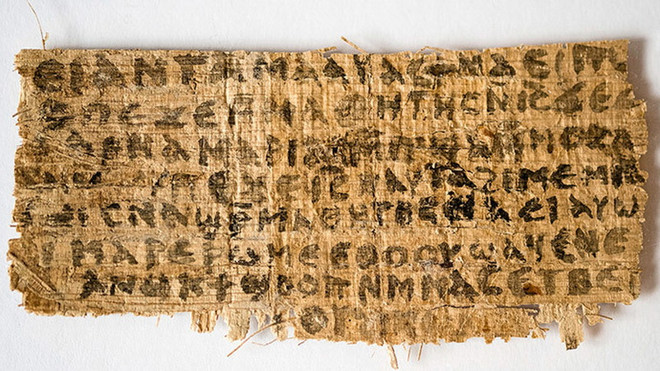 ⲉⲓ ⲁⲛ ⲧⲁⲙⲁⲁⲩ ⲁⲥϯ ⲛⲁⲉⲓ
ⲡⲉϫⲉ ⲙⲙⲁⲑⲏⲧⲏⲥ ⲛⲓⲥ ϫⲉ ⲥ
ⲁⲣⲛⲁ ⲙⲁⲣⲓⲁⲙ
ⲡⲉϫⲉ ⲓⲥ ⲛⲁⲩ ⲧⲁϩⲓⲙⲉ ⲙⲛ
ⲥⲛⲁϣⲣⲙⲁⲑⲏⲧⲏⲥ ⲛⲁⲉⲓ ⲁⲩⲱ
ⲙⲁⲣⲉⲣⲱⲙⲉ ⲉⲑⲟⲟⲩ ϣⲁϥⲉ ⲛⲉ
ⲁⲛⲟⲕ ϯϣⲟⲟⲡ ⲛⲙⲙⲁⲥ ⲉⲧⲃⲉ